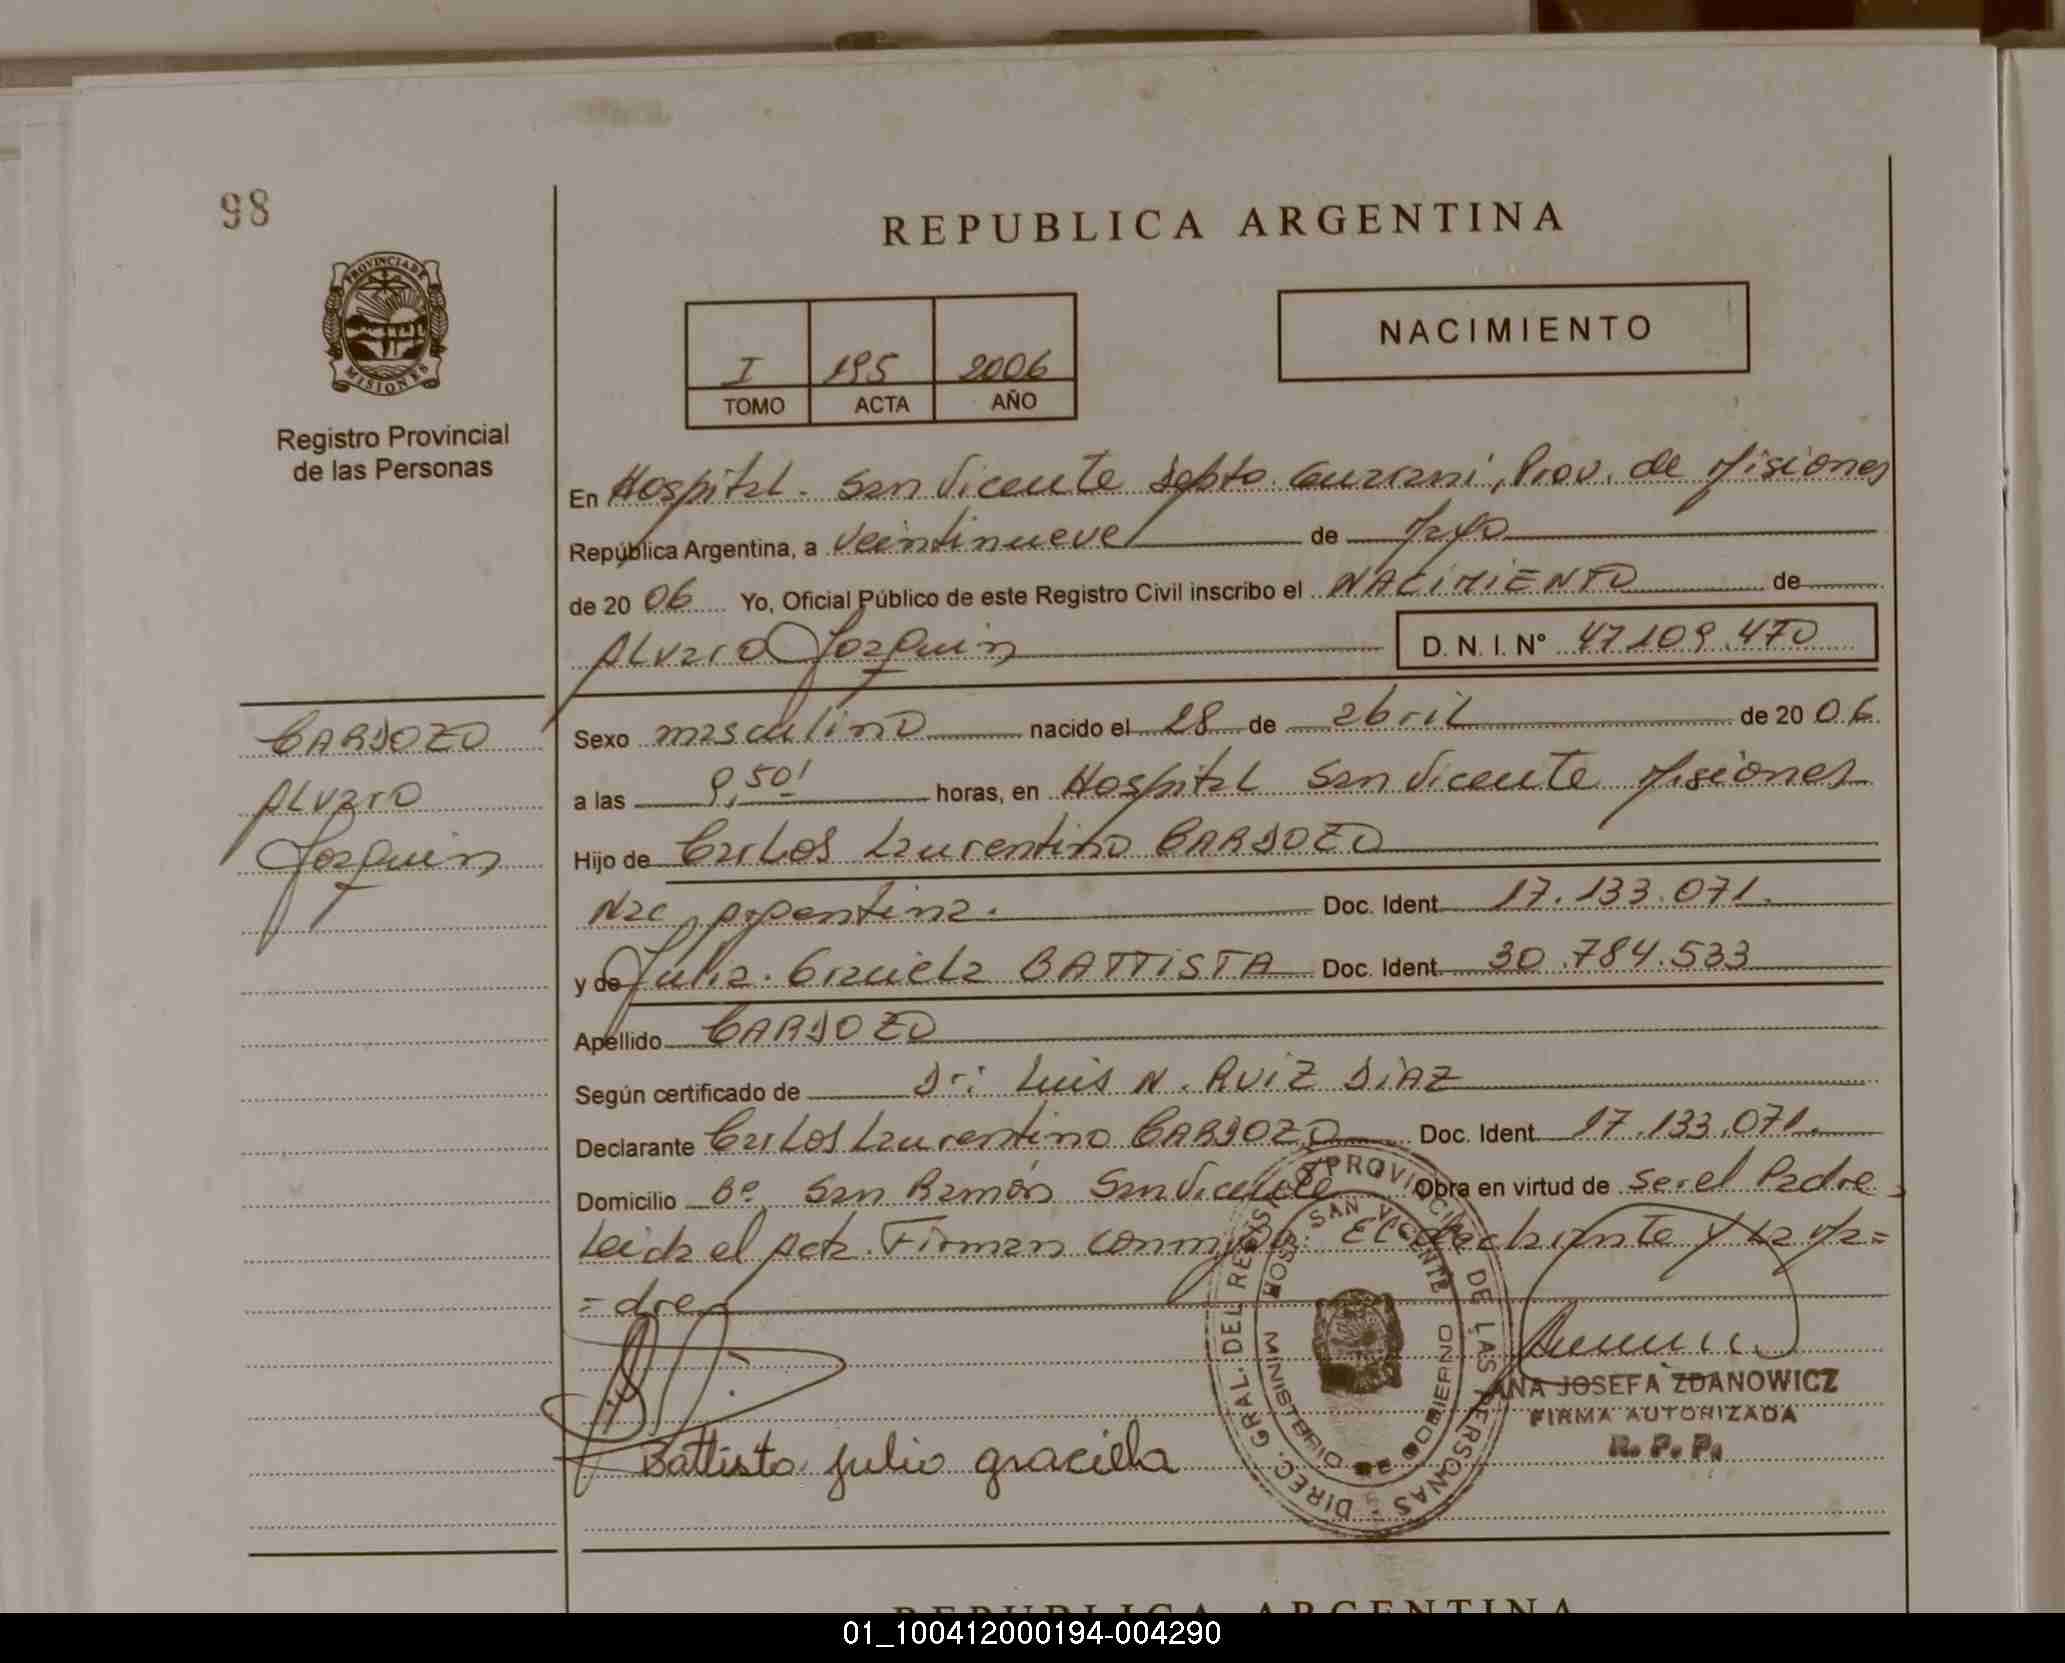 98
REPUBLICA ARGENTINA
PROVINCIA DE
MISIONES
Registro Provincial
de las Personas
I 195 2006
TOMO ACTA AÑO
NACIMIENTO
En Hospital. San Vicente Depto. Guarani, Prov. de Misiones
República Argentina, a Veintinueve de Mayo
de 20 06 Yo, Oficial Público de este Registro Civil inscribo el NACIMIENTO de
Alvaro Joaquin D. N. I. N° 47109.470
CARDOZO
Alvaro
Joaquin
Sexo masculino nacido el 28 de abril de 20 06
a las 9,50' horas, en Hospital San Vicente Misiones
Hijo de Carlos Laurentino CARDOZO
Nac. Argentina. Doc. Ident. 17.133.071.
y de Julia. Graciela BATTISTA Doc. Ident. 30.784.533
Apellido CARDOZO
Según certificado de Dr: Luis N. RUIZ DIAZ
Declarante Carlos Laurentino CARDOZO Doc. Ident. 17.133.071.
Domicilio Bº San Ramón San Vicente Obra en virtud de ser el Padre
Leida el Acta. Firman conmigo: El declarante y la Ma=
=dre
DIREC. GRAL. DEL REGISTRO PROVINCIAL DE LAS PERSONAS
HOSP. SAN VICENTE
MINISTERIO DE GOBIERNO
ANA JOSEFA ZDANOWICZ
FIRMA AUTORIZADA
R. P. P.
Battista julia graciela
REPUBLICA ARGENTINA
01_100412000194-004290